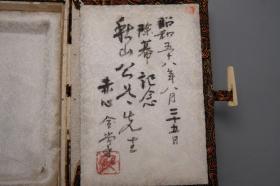 昭和五十八年八月二十五日
除幕記念
秋山公夫先生
赤心會堂